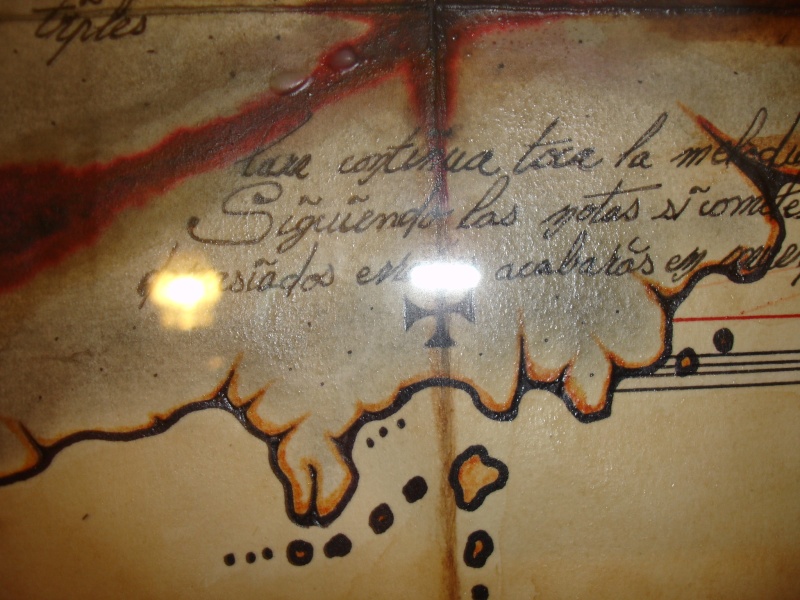 triples
Para continua toca la melodu
Siguiendo las notas si comete
acabarás en